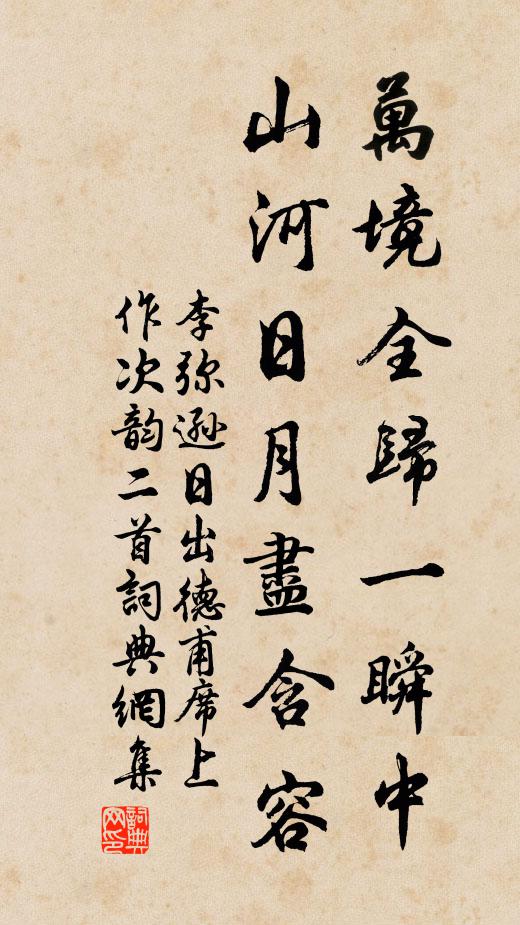 萬境全歸一瞬中
山河日月盡含容
李弥遜日出德甫席上
作次韵二首詞典網集
詞典
网印